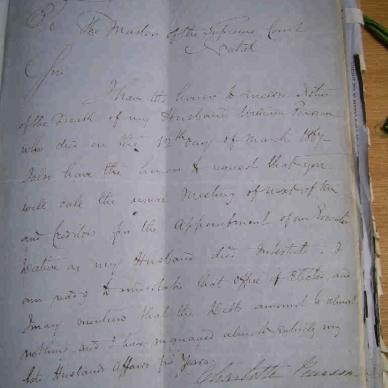 The Master of the Supreme Court
Natal
Sir
I have the honor to enclose Notice
of the Death of my Husband William Pearson
who died on the 12th day of March 1867
I also have the honor to request that you
will call the usual Meeting of next of kin
and Creditors for the Appointment of an Executor
Dative as my Husband died Intestate. I
am ready to undertake that office if Elected and
I may mention that the Debts amount to almost
nothing and I have managed almost entirely my
late Husbands Affairs for Years
Charlotte Pearson